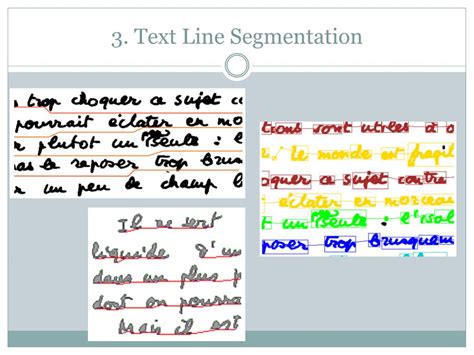 3. Text Line Segmentation
trop choquer ce sujet co
pourrait éclater en mo
plutôt un seule : l
pas le reposer trop brus
r un peu de champ l
tions sont utiles à
: le monde est fragil
oquer ce sujet contre
éclater en morceau
t un seule : l'isol
poser trop brusquem
Il se sert
liquide d'un
dans un plus p
dont on pourra
Mais il est